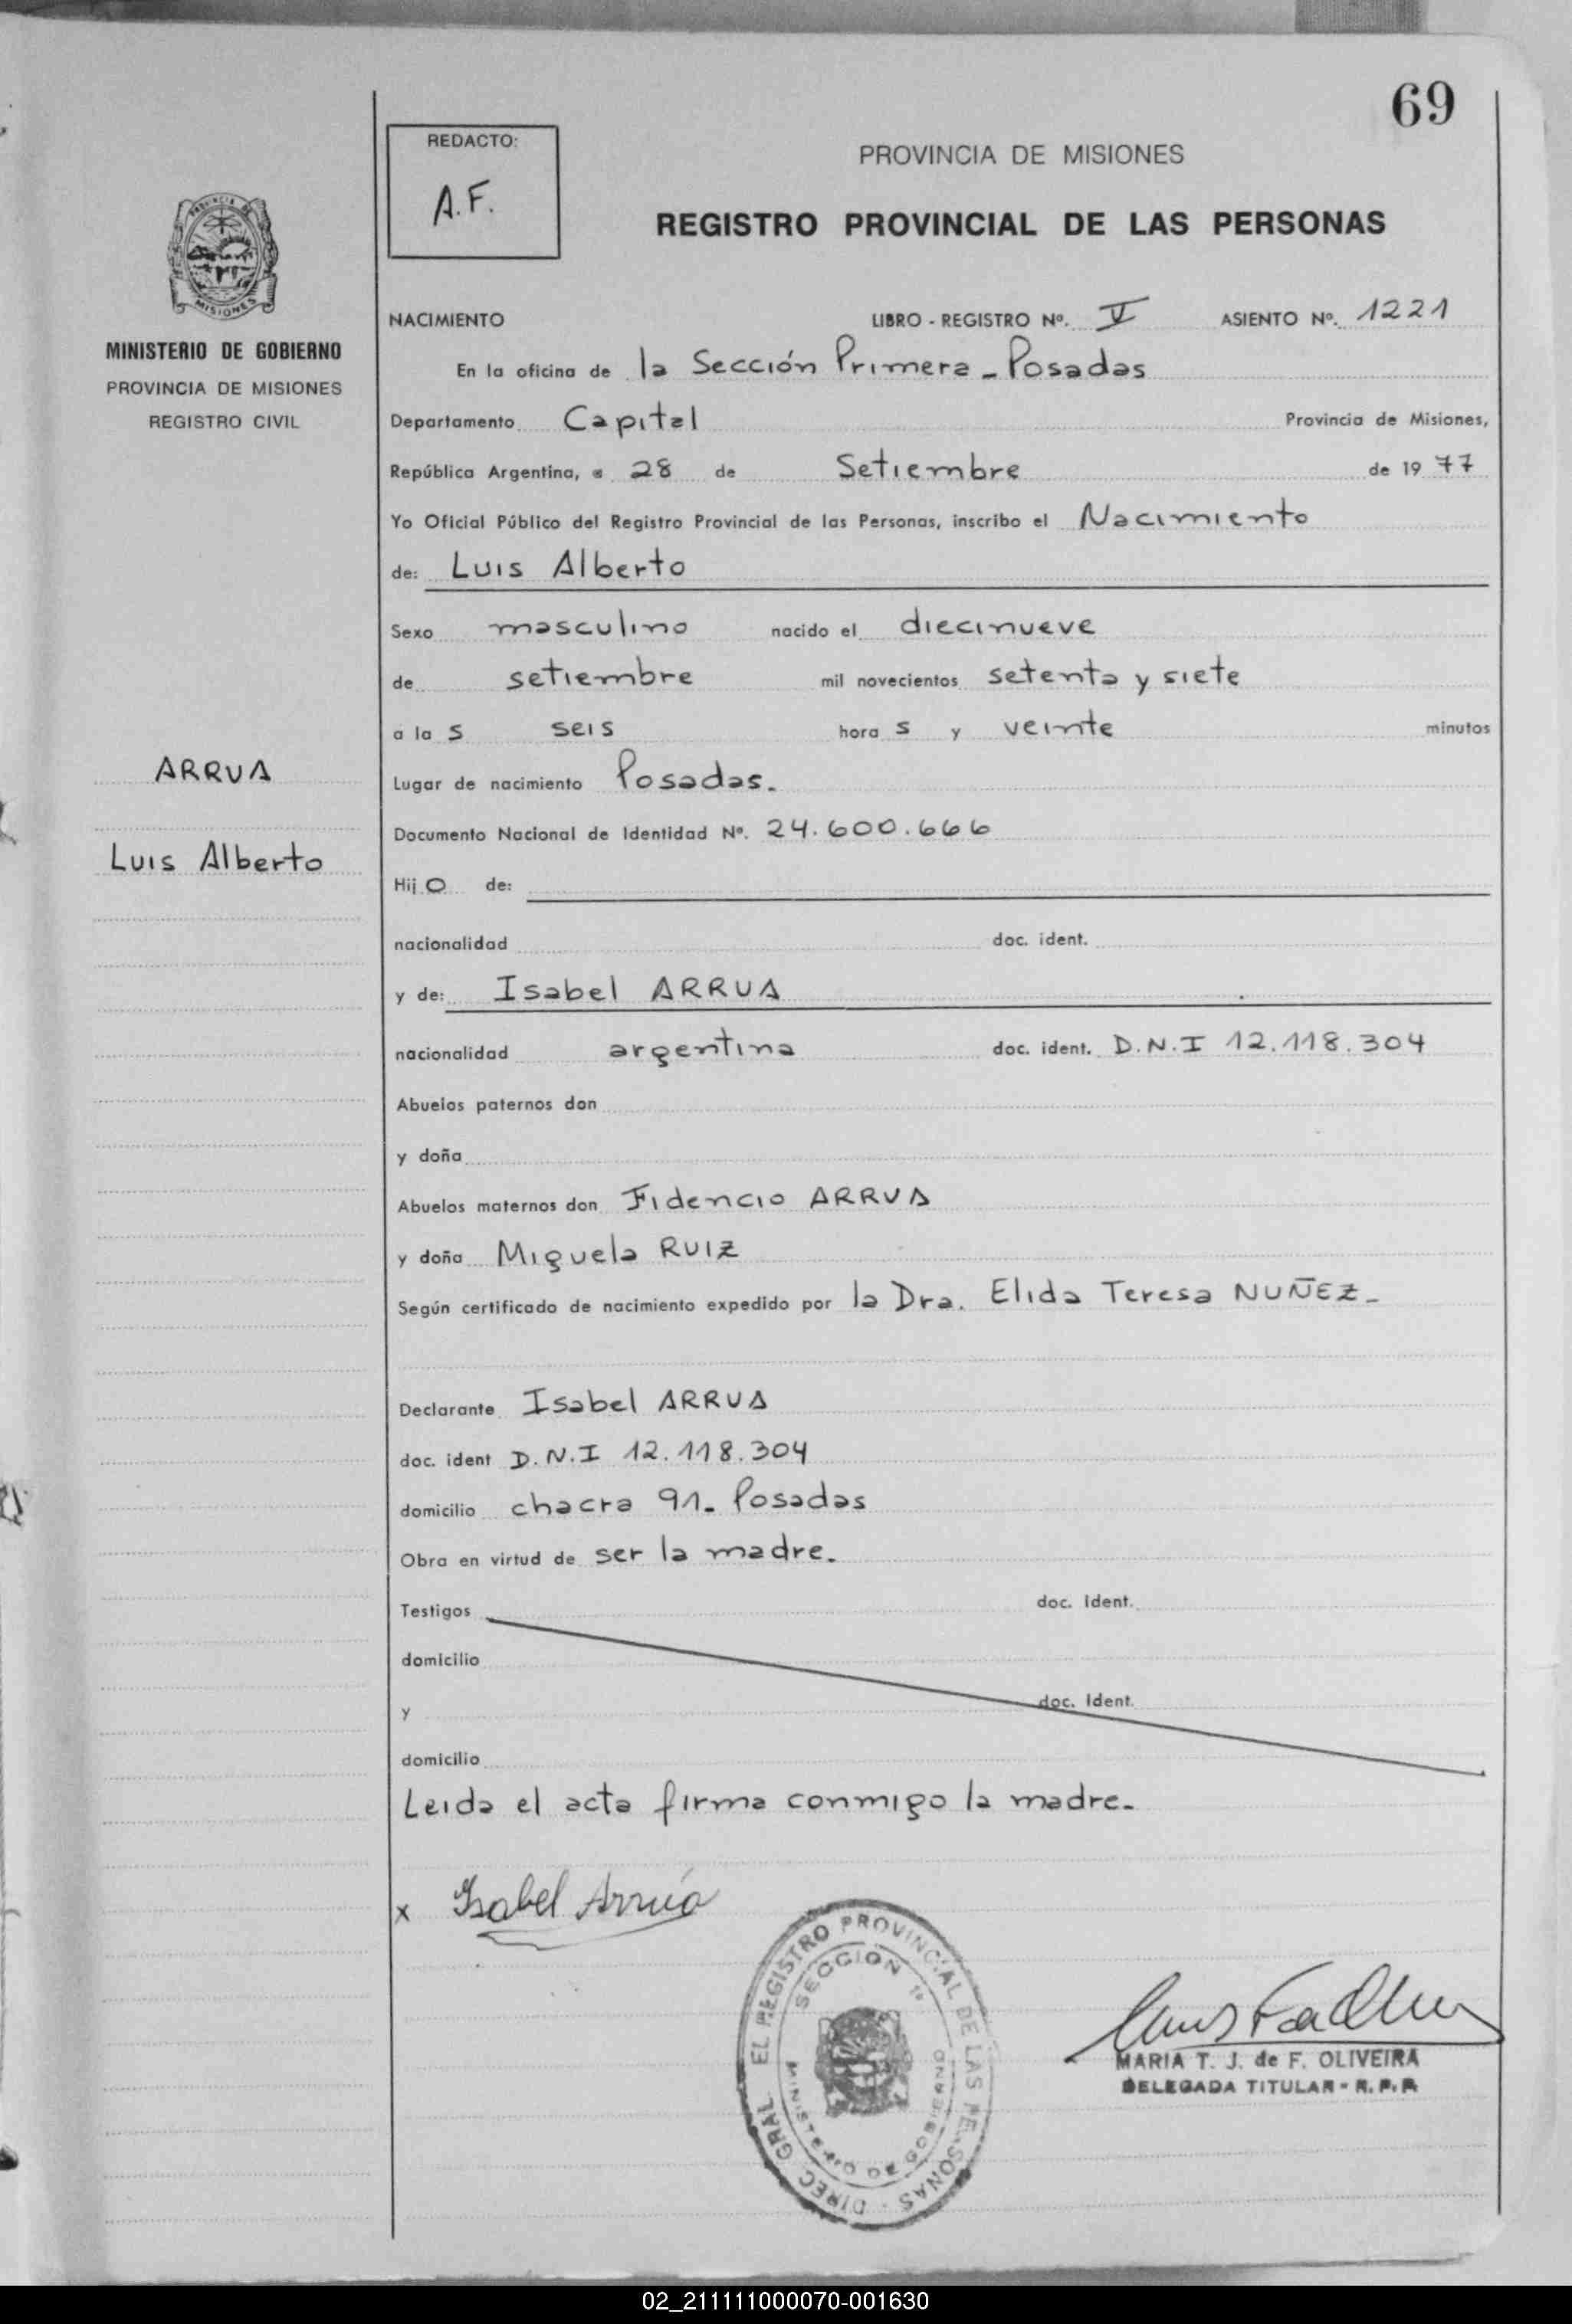 69
REDACTO:
A.F.
PROVINCIA DE MISIONES
REGISTRO PROVINCIAL DE LAS PERSONAS
PROVINCIA DE
MISIONES
MINISTERIO DE GOBIERNO
PROVINCIA DE MISIONES
REGISTRO CIVIL
ARRUA
Luis Alberto
NACIMIENTO LIBRO - REGISTRO Nº. V ASIENTO Nº. 1221
En la oficina de la Sección Primera - Posadas
Departamento Capital Provincia de Misiones,
República Argentina, a 28 de Setiembre de 19 77
Yo Oficial Público del Registro Provincial de las Personas, inscribo el Nacimiento
de: Luis Alberto
Sexo masculino nacido el diecinueve
de setiembre mil novecientos setenta y siete
a la s seis hora s y veinte minutos
Lugar de nacimiento Posadas.
Documento Nacional de Identidad Nº. 24.600.666
Hij o de:
nacionalidad doc. ident.
y de: Isabel ARRUA
nacionalidad argentina doc. ident. D.N.I 12.118.304
Abuelos paternos don
y doña
Abuelos maternos don Fidencio ARRUA
y doña Miguela RUIZ
Según certificado de nacimiento expedido por la Dra. Elida Teresa NUÑEZ-
Declarante Isabel ARRUA
doc. ident D.N.I 12.118.304
domicilio chacra 91- Posadas
Obra en virtud de ser la madre.
Testigos doc. Ident.
domicilio
y doc. Ident.
domicilio
Leida el acta firma conmigo la madre-
x Isabel Arrúa
DIREC. GRAL. EL REGISTRO PROVINCIAL DE LAS PERSONAS -
SECCION 1ª
MINISTERIO DE GOBIERNO
MARIA T. J. de F. OLIVEIRA
DELEGADA TITULAR - R.P.P.
02_211111000070-001630